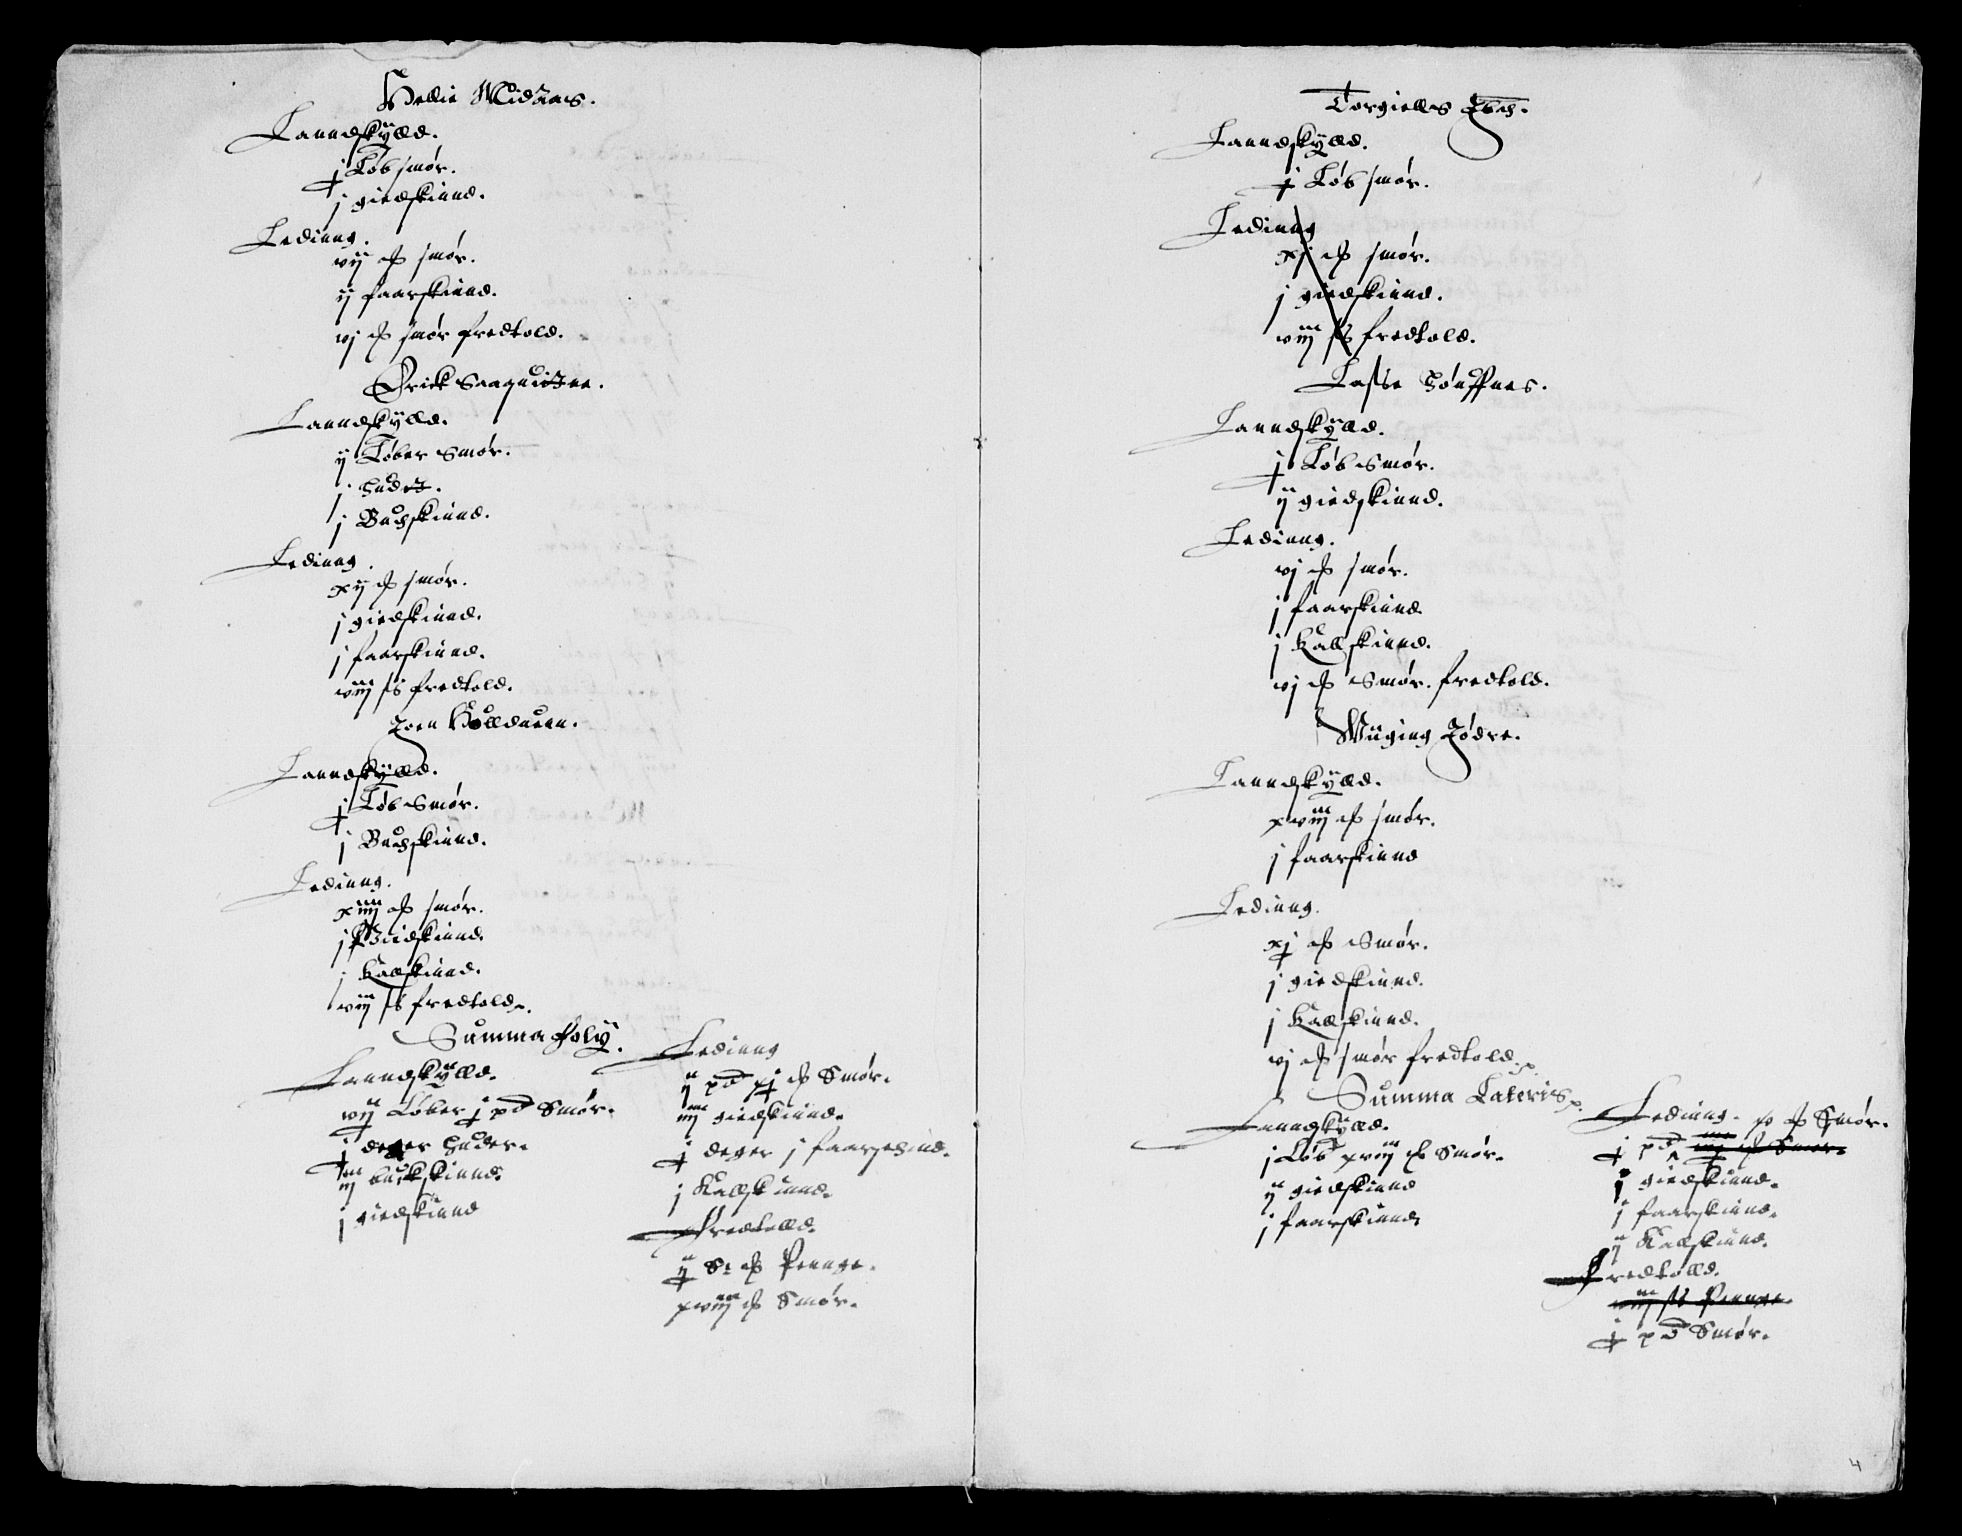 Hellie Midnæs.
Lanndskylld.
j Løb smør.
j giedskinnd.
Lediung.
vij ℔ smør.
ij faarskinnd.
vj ℔ smør fredtold.
Erick
Lanndskylld.
ij Løber Smør.
j hudt.
j Buchskinnd.
Lediung.
xij ℔ smør.
j giedskinnd.
j faarskinnd.
viij ß fredtold.
Joen
Lanndskylld.
j Løb Smør.
j Buchskinnd.
Lediung.
xiiij ℔ smør.
j giedskinnd.
j Kallskinnd.
viij ß fredtold.
Summa Foly.
Lanndskylld.
vij Løber j pd Smør.
j deger huder.
iij buckskinnd.
j giedskinnd
Lediung
ij pd xj ℔ Smør.
iiij giedskinnd.
j deger j faarschind.
j Kallskinnd.
Fredtolld.
ij ℔ Pennge.
xviij ℔ Smør.
Torgiells
Lanndskylld.
j Løb smør.
Lediung
xj ℔ smør.
j giedskinnd.
viij ß fredtold.
Lasse
Lanndskylld.
j Løb Smør.
ij giedskinnd.
Lediung.
vj ℔ smør.
j faarskinnd.
j Kallskinnd.
vj ℔ Smør. fredtold.
Wiiging Jødre.
Lanndskylld.
xviij ℔ smør.
j faarskinnd
Lediung.
xj ℔ Smør.
j giedskinnd.
j Kallskinnd.
vj ℔ smør fredtold.
Summa Lateris
Lanndskylld.
j Løb xviij ℔ Smør.
ij giedskinnd
j faarskinnd
Lediung. ℔ Smør.
j pd ℔ Smør.
j giedskinnd.
j faarskinnd.
ij Kallskinnd.
Fredtolld.
viij ß Pennge.
j pd Smør.
4